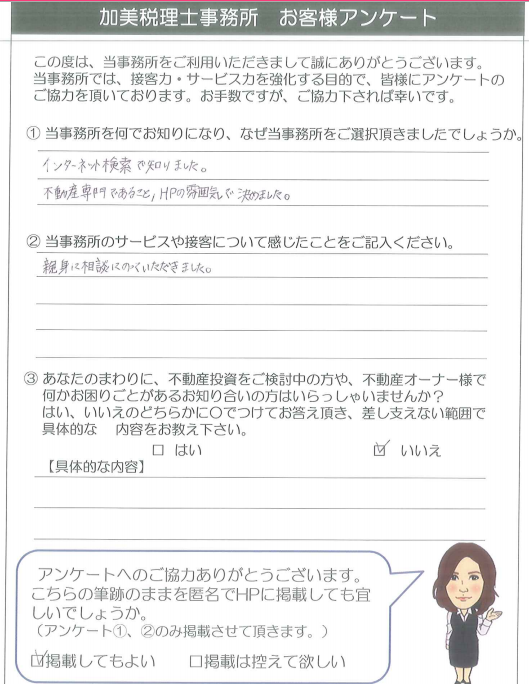 加美税理士事務所 お客様アンケート
この度は、当事務所をご利用いただきまして誠にありがとうございます。
当事務所では、接客力・サービス力を強化する目的で、皆様にアンケートの
ご協力を頂いております。お手数ですが、ご協力下されば幸いです。
① 当事務所を何でお知りになり、なぜ当事務所をご選択頂きましたでしょうか。
インターネット検索で知りました。
不動産専門であること、HPの雰囲気で決めました。
② 当事務所のサービスや接客について感じたことをご記入ください。
親身に相談にのっていただきました。
③ あなたのまわりに、不動産投資をご検討中の方や、不動産オーナー様で
何かお困りごとがあるお知り合いの方はいらっしゃいませんか？
はい、いいえのどちらかに〇でつけてお答え頂き、差し支えない範囲で
具体的な 内容をお教え下さい。
□ はい ☑ いいえ
【具体的な内容】
アンケートへのご協力ありがとうございます。
こちらの筆跡のままを匿名でHPに掲載しても宜
しいでしょうか。
（アンケート①、②のみ掲載させて頂きます。）
☑掲載してもよい □掲載は控えて欲しい